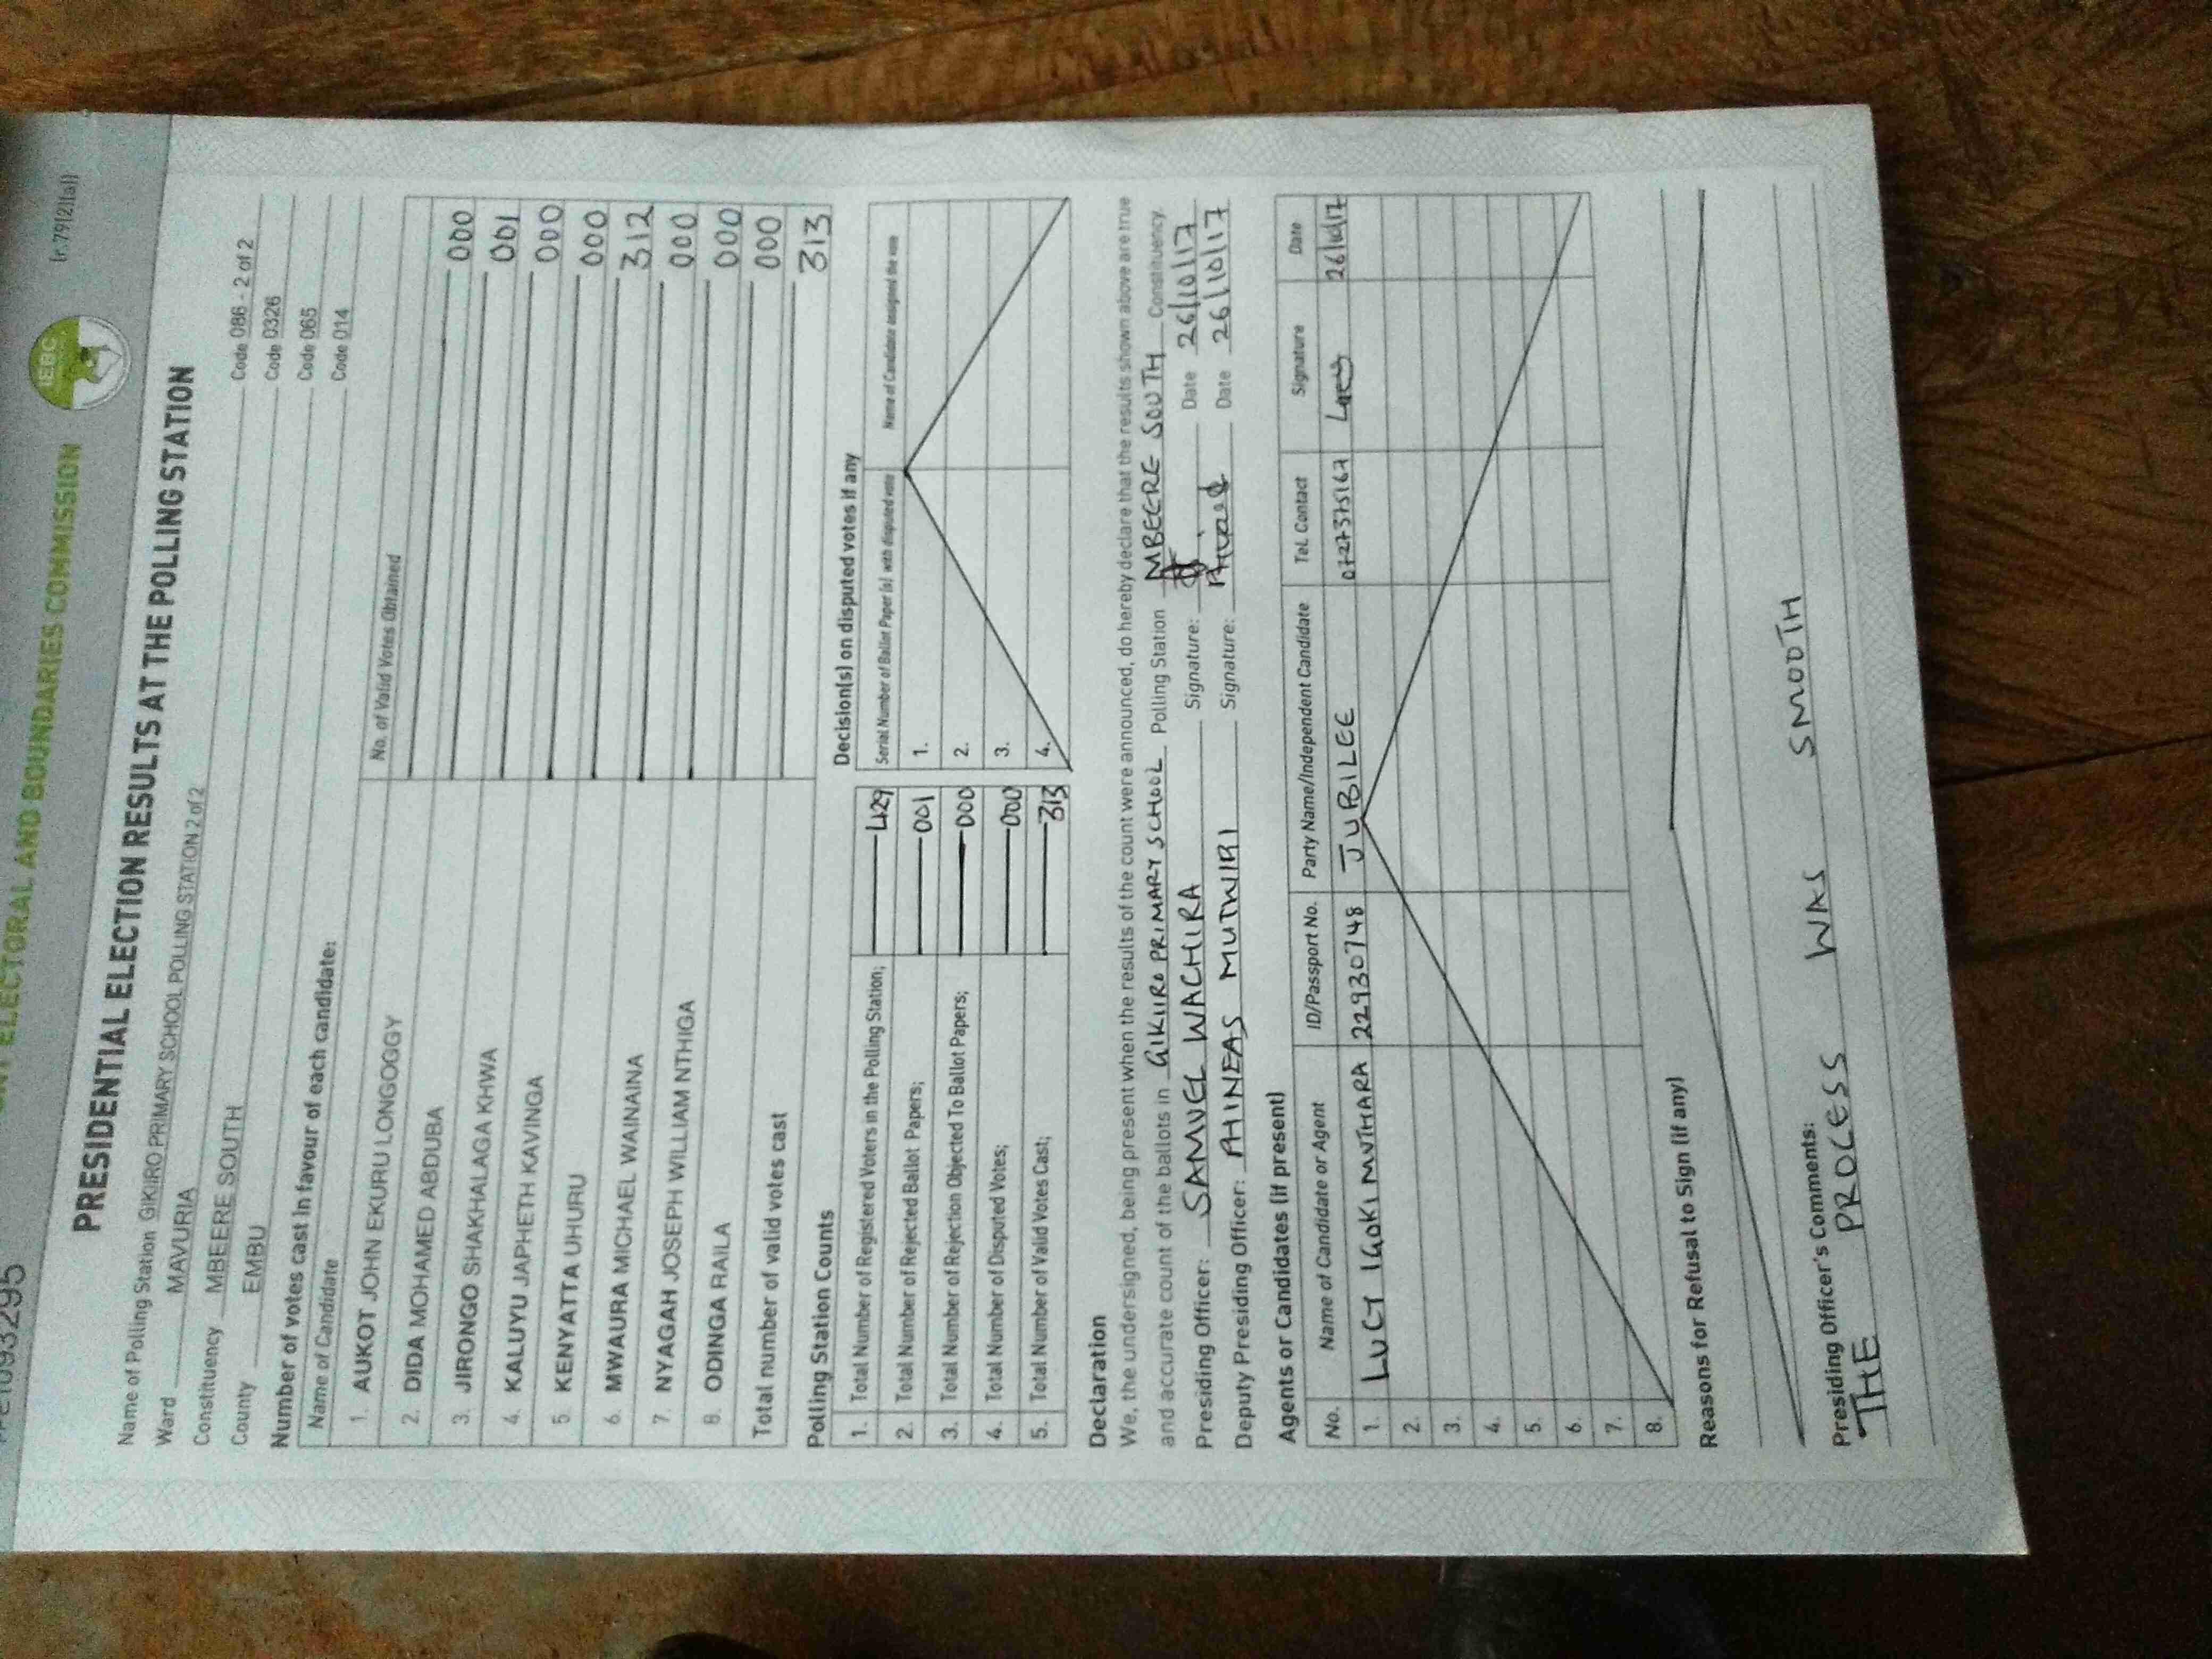 ELECTORAL AND BOUNDARIES COMMISSION
IEBC
(r.79(2)(a))
PRESIDENTIAL ELECTION RESULTS AT THE POLLING STATION
Name of Polling Station GIKIIRO PRIMARY SCHOOL POLLING STATION 2 of 2 Code 086 - 2 of 2
Ward MAVURIA Code 0326
Constituency MBEERE SOUTH Code 065
County EMBU Code 014
Number of votes cast in favour of each candidate:
Name of Candidate No. of Valid Votes Obtained
1. AUKOT JOHN EKURU LONGOGGY 000
2. DIDA MOHAMED ABDUBA 001
3. JIRONGO SHAKHALAGA KHWA 000
4. KALUYU JAPHETH KAVINGA 000
5. KENYATTA UHURU 312
6. MWAURA MICHAEL WAINAINA 000
7. NYAGAH JOSEPH WILLIAM NTHIGA 000
8. ODINGA RAILA 000
Total number of valid votes cast 313
Polling Station Counts
1. Total Number of Registered Voters in the Polling Station; 429
2. Total Number of Rejected Ballot Papers; 001
3. Total Number of Rejection Objected To Ballot Papers; 000
4. Total Number of Disputed Votes; 000
5. Total Number of Valid Votes Cast; 313
Decision(s) on disputed votes if any
Serial Number of Ballot Paper (s) with disputed vote Name of Candidate assigned the vote
1.
2.
3.
4.
Declaration
We, the undersigned, being present when the results of the count were announced, do hereby declare that the results shown above are true
and accurate count of the ballots in GIKIIRO PRIMARY SCHOOL Polling Station MBEERE SOUTH Constituency.
Presiding Officer: SAMUEL WACHIRA Signature: Date 26/10/17
Deputy Presiding Officer: PHINEAS MUTWIRI Signature: Date 26/10/17
Agents or Candidates (if present)
No. Name of Candidate or Agent ID/Passport No. Party Name/Independent Candidate Tel. Contact Signature Date
1. LUCY IGOKI MUTHARA 22930748 JUBILEE 0727375167 Lucy 26/10/17
2.
3.
4.
5.
6.
7.
8.
Reasons for Refusal to Sign (if any)
Presiding Officer's Comments:
THE PROCESS WAS SMOOTH